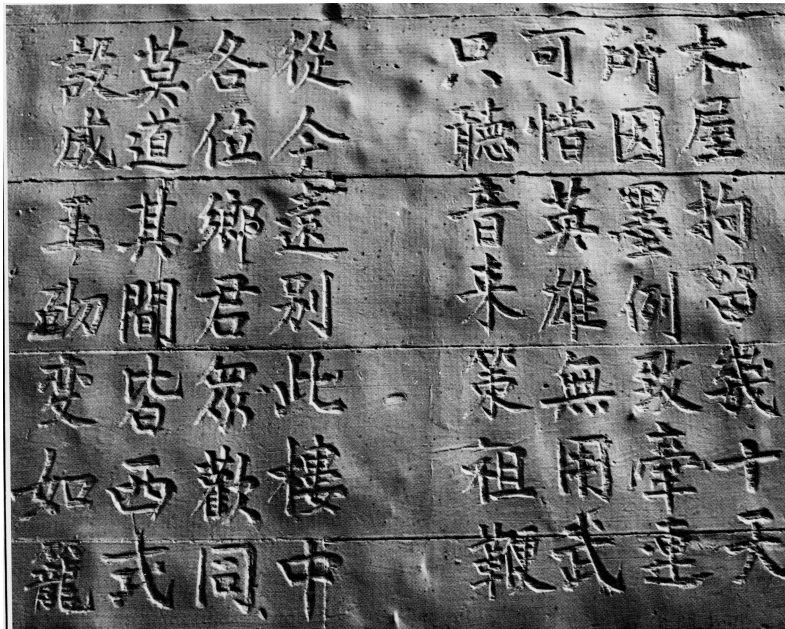 木屋拘留幾十天
所因墨例致牽連
可惜英雄無用武
只聽音来策祖鞭
從今遠別此樓中
各位鄉君眾歡同
莫道其間皆西式
設成玉砌変如籠